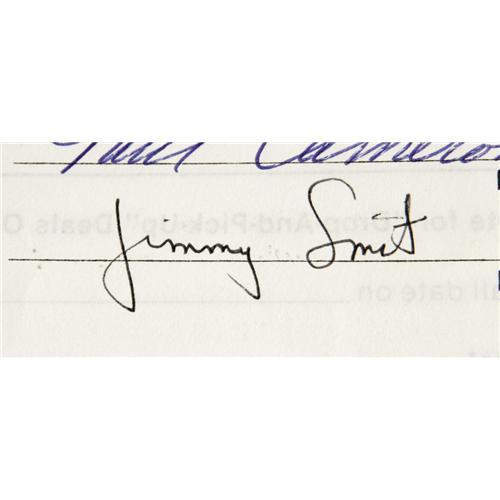 Paul Cameron
te for "Drop-And-Pick-Up" Deals O
Jimmy Smit
all date on